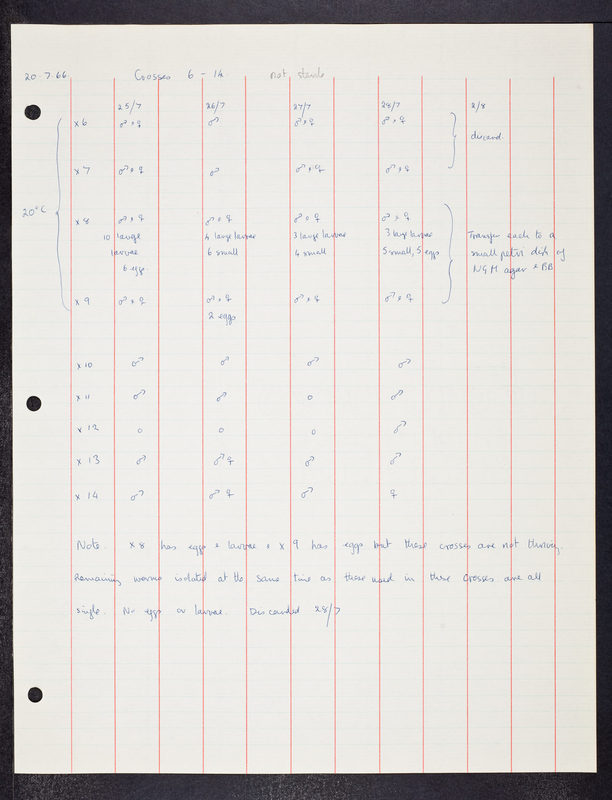 20.7.66 Crosses 6 - 14 not sterile
25/7 26/7 27/7 28/7 2/8
x 6 ♂ + ♀ ♂ ♂ + ♀ ♂ + ♀ discard.
x 7 ♂ + ♀ ♂ ♂ + ♀ ♂ + ♀
20°C
x 8 ♂ + ♀ ♂ + ♀ ♂ + ♀ ♂ + ♀
10 large 4 large larvae 3 large larvae 3 large larvae Transfer each to a
larvae 6 small 4 small 5 small, 5 eggs small petri dish of
6 eggs NGM agar + BB
x 9 ♂ + ♀ ♂ + ♀ ♂ + ♀ ♂ + ♀
2 eggs
x 10 ♂ ♂ ♂ ♂
x 11 ♂ ♂ o ♂
x 12 o o o ♂
x 13 ♂ ♂ ♀ ♂ ♂
x 14 ♂ ♂ ♀ ♂ ♀
Note. x 8 has eggs + larvae + x 9 has eggs but these crosses are not thriving.
Remaining worms isolated at the same time as those used in these crosses are all
single. No eggs or larvae. Discarded 28/7